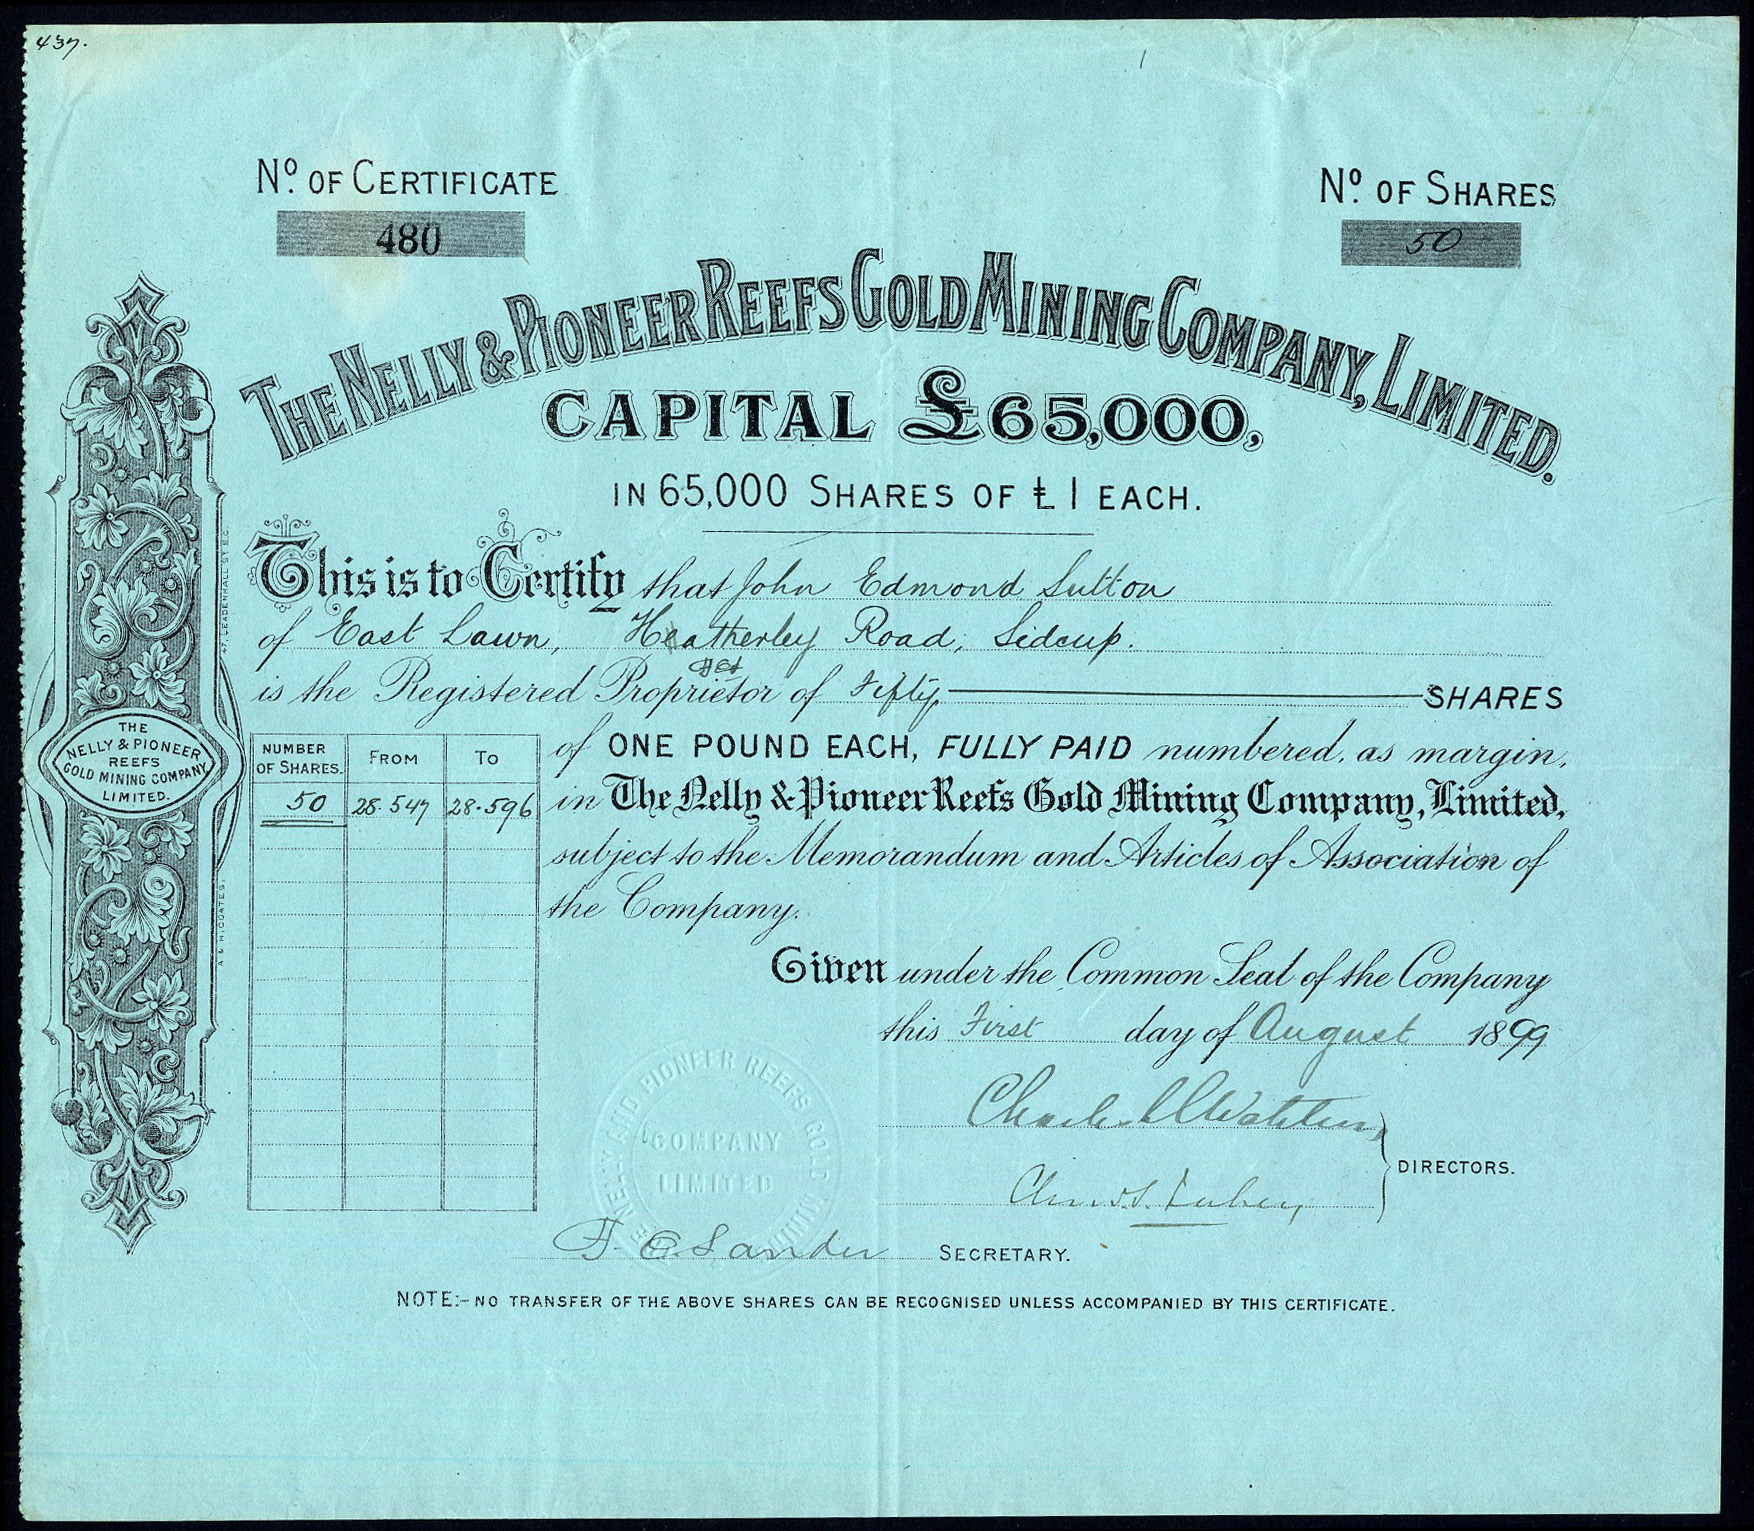 437.
Nº. OF CERTIFICATE
480
Nº. OF SHARES
50
THE NELLY & PIONEER REEFS GOLD MINING COMPANY, LIMITED.
CAPITAL £65,000,
IN 65,000 SHARES OF £1 EACH.
This is to Certify that John Edmond Sutton
of East Lawn, Heatherley Road, Sidcup.
is the Registered Proprietor of Fifty SHARES
of ONE POUND EACH, FULLY PAID numbered, as margin,
in The Nelly & Pioneer Reefs Gold Mining Company, Limited,
subject to the Memorandum and Articles of Association of
the Company.
NUMBER OF SHARES. FROM TO
50 28.547 28.596
Given under the Common Seal of the Company
this First day of August 1899
DIRECTORS.
F. C. Sander SECRETARY.
NOTE:- NO TRANSFER OF THE ABOVE SHARES CAN BE RECOGNISED UNLESS ACCOMPANIED BY THIS CERTIFICATE.
THE
NELLY & PIONEER
REEFS
GOLD MINING COMPANY
LIMITED.
47, LEADENHALL ST E.C.
THE NELLY AND PIONEER REEFS GOLD MINING
COMPANY
LIMITED